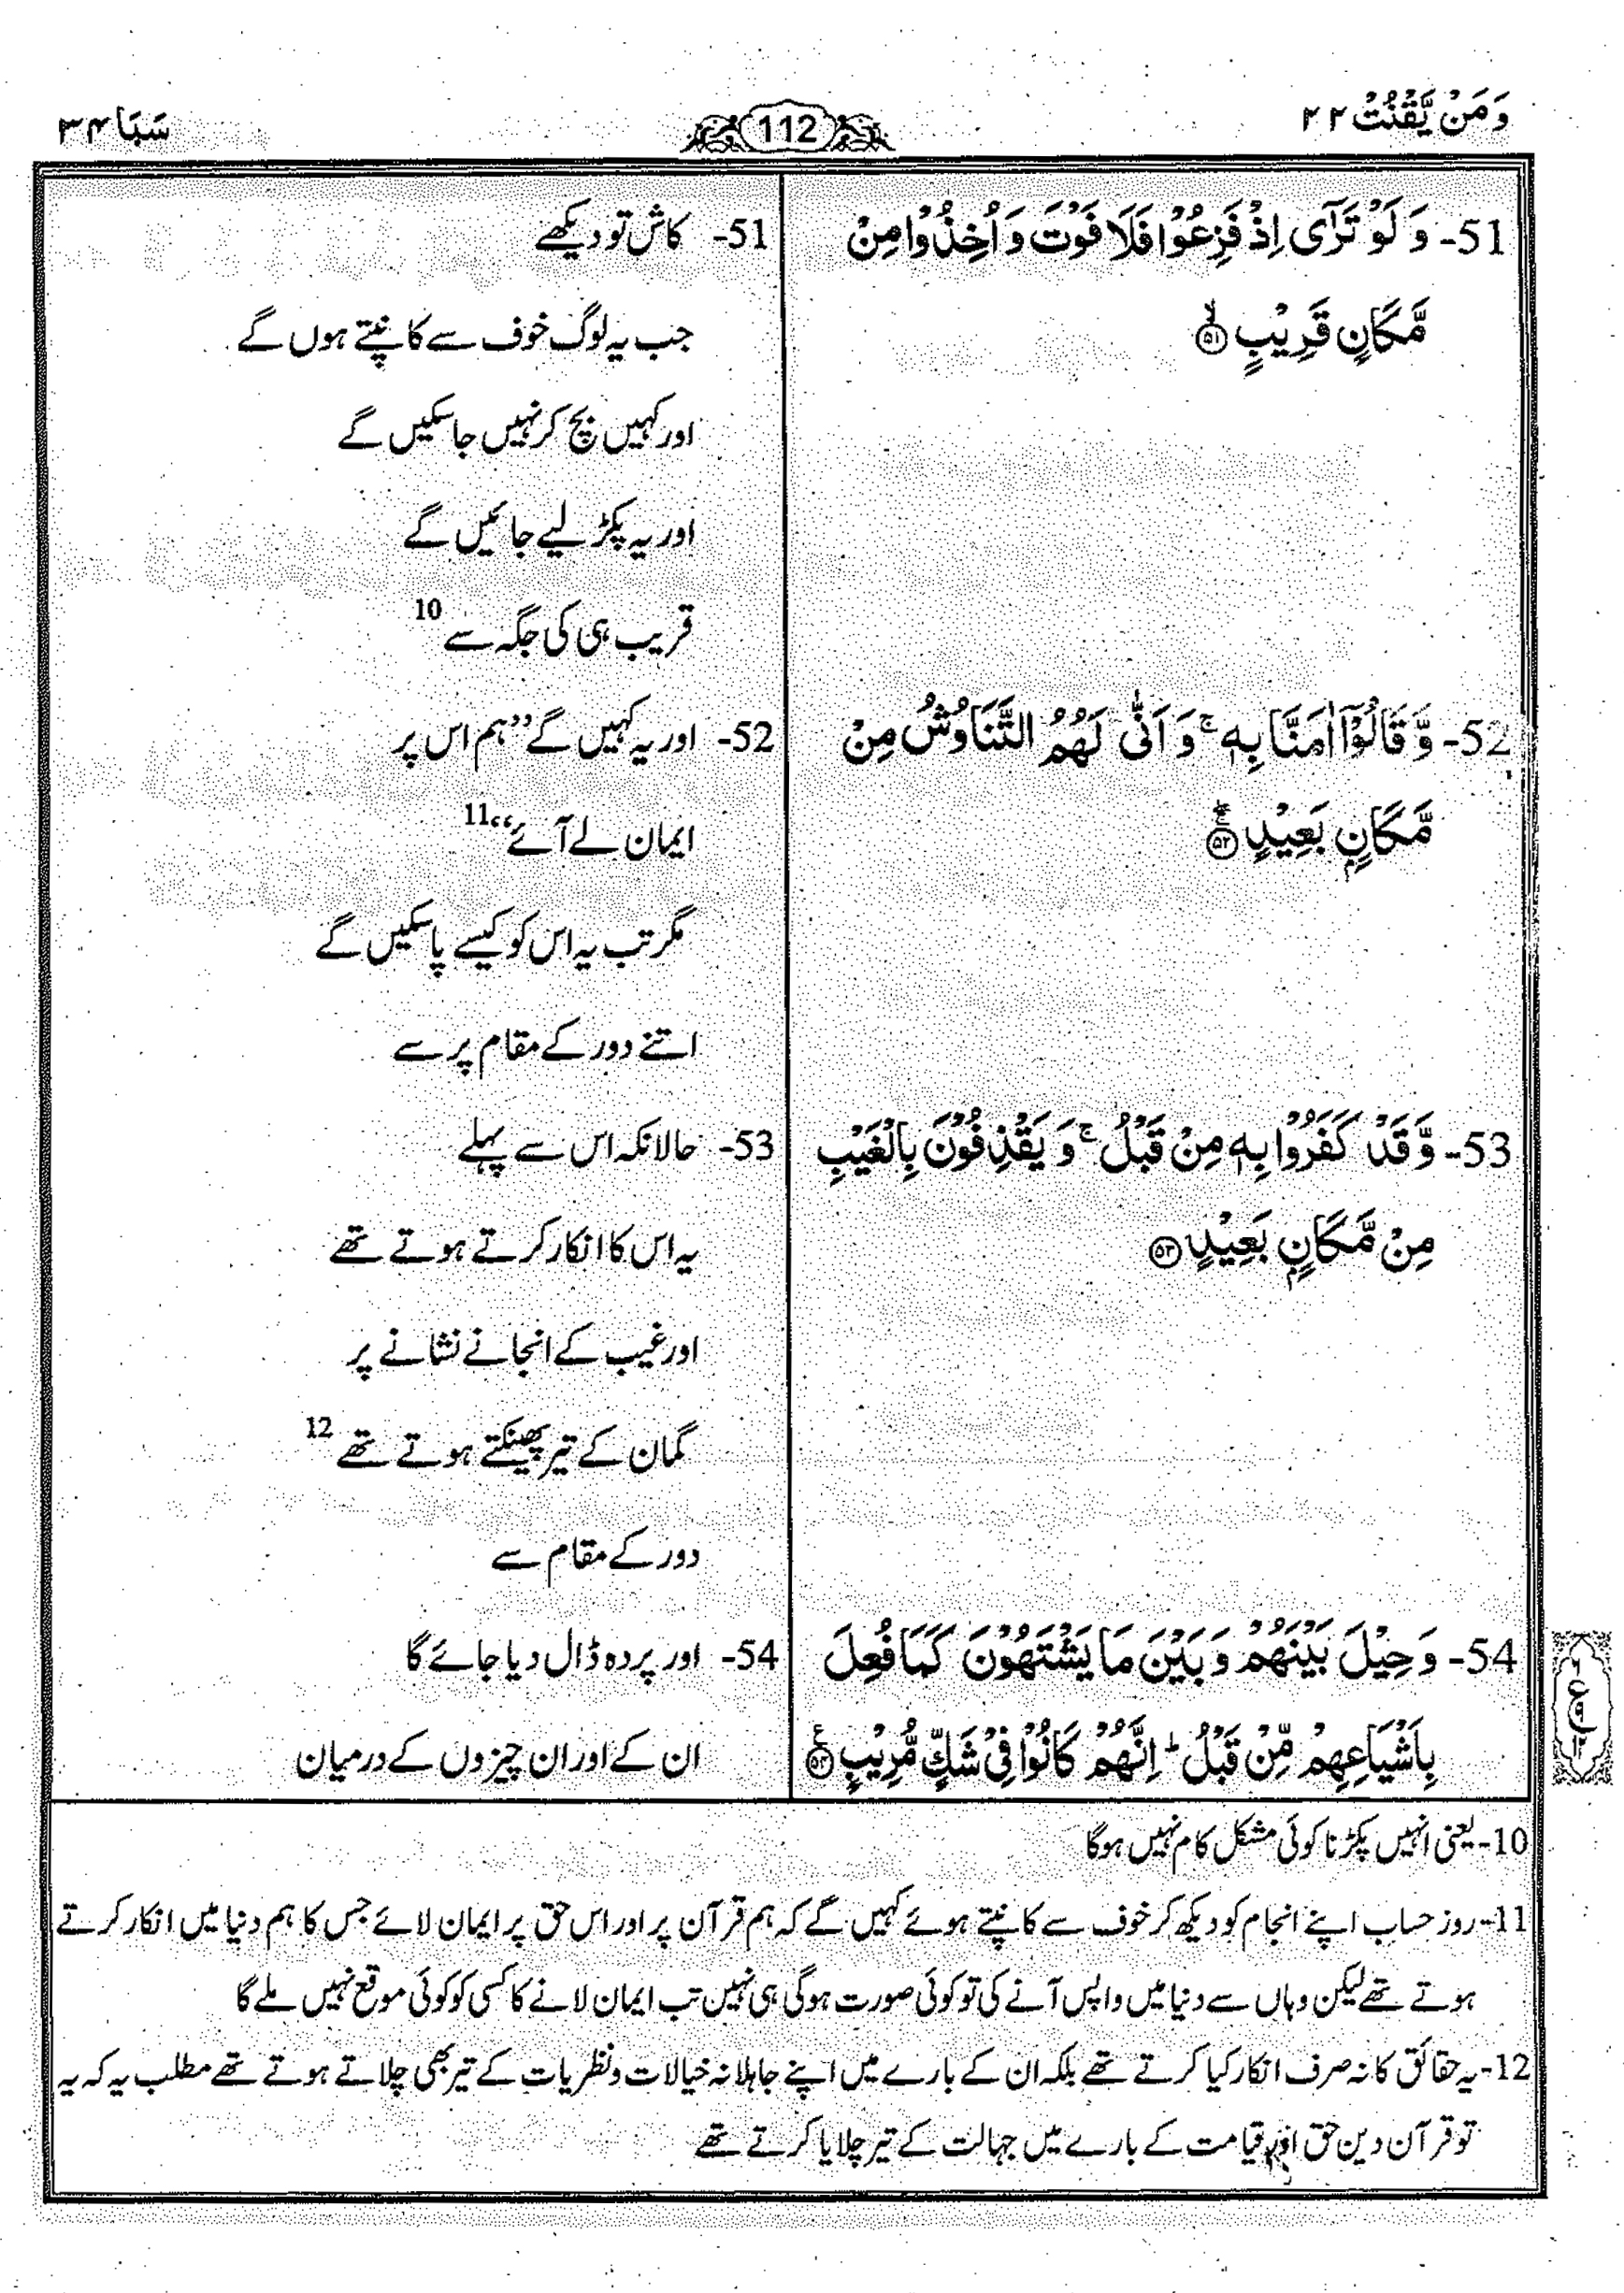 وَمَنْ يَّقْنُتْ ٢٢
112
سَبَا ٣٤
51- وَ لَوْ تَرٰۤى اِذْ فَزِعُوْا فَلَا فَوْتَ وَ اُخِذُوْا مِنْ
مَّكَانٍ قَرِيْبٍ ۙ﴿۵۱﴾
52- وَّ قَالُوْۤا اٰمَنَّا بِهٖ ۚ وَ اَنّٰى لَهُمُ التَّنَاوُشُ مِنْ
مَّكَانٍۭ بَعِيْدٍ ﴿۵۲﴾
53- وَّ قَدْ كَفَرُوْا بِهٖ مِنْ قَبْلُ ۚ وَ يَقْذِفُوْنَ بِالْغَيْبِ
مِنْ مَّكَانٍۭ بَعِيْدٍ ﴿۵۳﴾
54- وَ حِيْلَ بَيْنَهُمْ وَ بَيْنَ مَا يَشْتَهُوْنَ كَمَا فُعِلَ
بِاَشْيَاعِهِمْ مِّنْ قَبْلُ ؕ اِنَّهُمْ كَانُوْا فِيْ شَكٍّ مُّرِيْبٍ ﴿۵۴﴾
51- کاش تو دیکھے
جب یہ لوگ خوف سے کانپتے ہوں گے
اور کہیں بچ کر نہیں جا سکیں گے
اور یہ پکڑ لیے جائیں گے
قریب ہی کی جگہ سے 10
52- اور یہ کہیں گے ”ہم اس پر
ایمان لے آئے“ 11
مگر تب یہ اس کو کیسے پا سکیں گے
اتنے دور کے مقام پر سے
53- حالانکہ اس سے پہلے
یہ اس کا انکار کرتے ہوتے تھے
اور غیب کے انجانے نشانے پر
گمان کے تیر پھینکتے ہوتے تھے 12
دور کے مقام سے
54- اور پردہ ڈال دیا جائے گا
ان کے اور ان چیزوں کے درمیان
10- یعنی انہیں پکڑنا کوئی مشکل کام نہیں ہوگا
11- روز حساب اپنے انجام کو دیکھ کر خوف سے کانپتے ہوئے کہیں گے کہ ہم قرآن پر اور اس حق پر ایمان لائے جس کا ہم دنیا میں انکار کرتے
ہوتے تھے لیکن وہاں سے دنیا میں واپس آنے کی تو کوئی صورت ہوگی ہی نہیں تب ایمان لانے کا کسی کو کوئی موقع نہیں ملے گا
12- یہ حقائق کا نہ صرف انکار کیا کرتے تھے بلکہ ان کے بارے میں اپنے جاہلانہ خیالات و نظریات کے تیر بھی چلاتے ہوتے تھے مطلب یہ کہ یہ
تو قرآن دین حق اور قیامت کے بارے میں جہالت کے تیر چلایا کرتے تھے